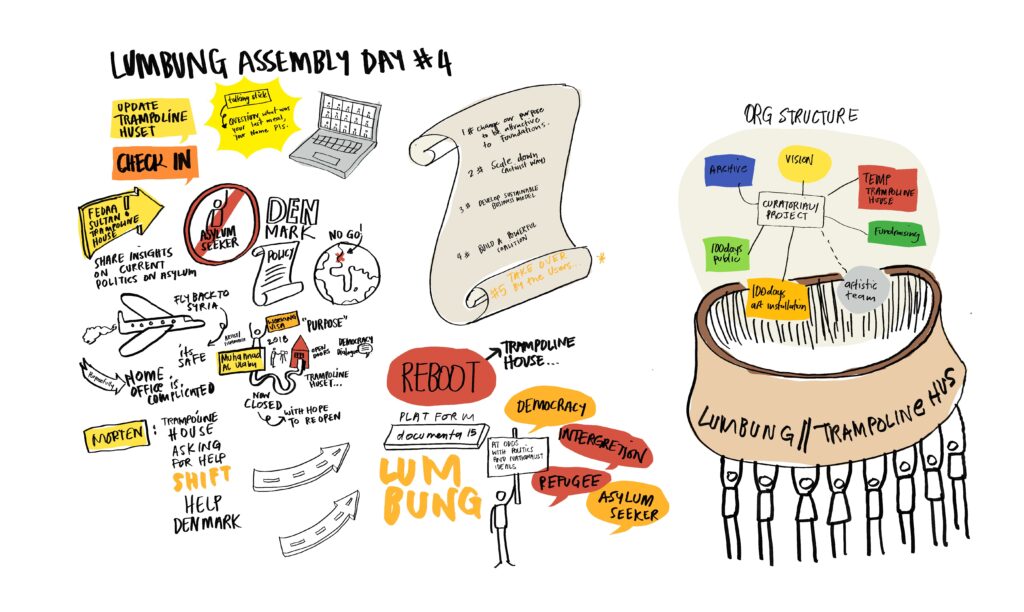 LUMBUNG ASSEMBLY DAY #4
UPDATE
TRAMPOLINE
HUSET
talking stick
QUESTION, what was
your last meal,
your Home Pls.
CHECK IN
FEDAA
SULTAN
TRAMPOLINE
HOUSE
!
ASYLUM
SEEKER
DEN
MARK
POLICY
NO GO!
x
SHARE INSIGHTS
ON CURRENT
POLITICS ON ASYLUM
FLY BACK TO
SYRIA
its
SAFE
HOME
OFFICE is
COMPLICATED
Muhannad
AL Ulabi
WORKING
VISA
2018
"PURPOSE"
OPEN
DOORS
DEMOCRACY
Dialogue
TRAMPOLINE
HUSET...
NOW
CLOSED
WITH HOPE
TO RE OPEN
MORTEN :
TRAMPOLINE
HOUSE
ASKING
FOR HELP
SHIFT
HELP
DENMARK
1 # change our purpose
to be attractive
to Foundations..
2 # Scale down
3 # DEVELOP SUSTAINABLE
BUSINESS MODEL
4 # BUILD A POWERFUL
COALITION
#5 TAKE OVER
By the Users... *
REBOOT
TRAMPOLINE
HOUSE...
PLAT FOR M
documenta 15
LUM
BUNG
AT ODDS
WITH POLITICS
AND NATIONALIST
IDEALS
DEMOCRACY
INTERGRETION
REFUGEE
ASYLUM
SEEKER
ORG STRUCTURE
ARCHIVE
VISION
TEMP
TRAMPOLINE
HOUSE
CURATORIAL/
PROJECT
Fundraising
100days
public
100days
art installation
artistic
team
LUMBUNG // TRAMPOLINE HUS